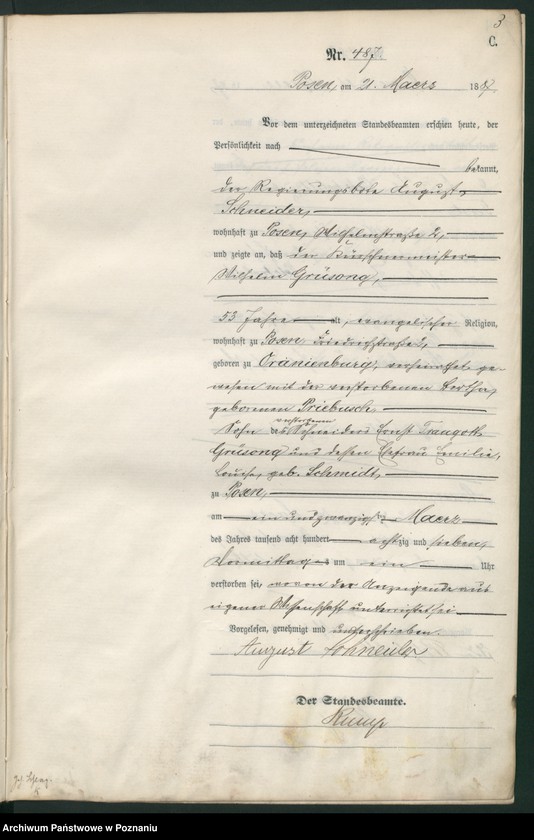 3
C.
Nr. 487
Posen, am 21. Maerz 1887
Vor dem unterzeichneten Standesbeamten erschien heute, der
Persönlichkeit nach
bekannt,
der Regierungsbote August
Schneider,
wohnhaft zu Posen, Wilhelmstraße 2,
und zeigte an, daß der Kürschnermeister
Wilhelm Grüsong,
53 Jahre alt, evangelischer Religion,
wohnhaft zu Posen Friedrichstraße 2,
geboren zu Oranienburg, verheirathet ge-
wesen mit der verstorbenen Bertha,
geborenen Priebusch,
verstorbenen
Sohn des Schneiders Ernst Traugott
Grüsong und dessen Ehefrau Emilie,
Louise, geb. Schmidt,
zu Posen,
am ein und zwanzigsten Maerz
des Jahres tausend acht hundert achtzig und sieben,
Vormittags um ein Uhr
verstorben sei, wovon der Anzeigende aus
eigener Wissenschaft unterrichtet sei
Vorgelesen, genehmigt und unterschrieben.
August Schneider
Der Standesbeamte.
Archiwum Państwowe w Poznaniu